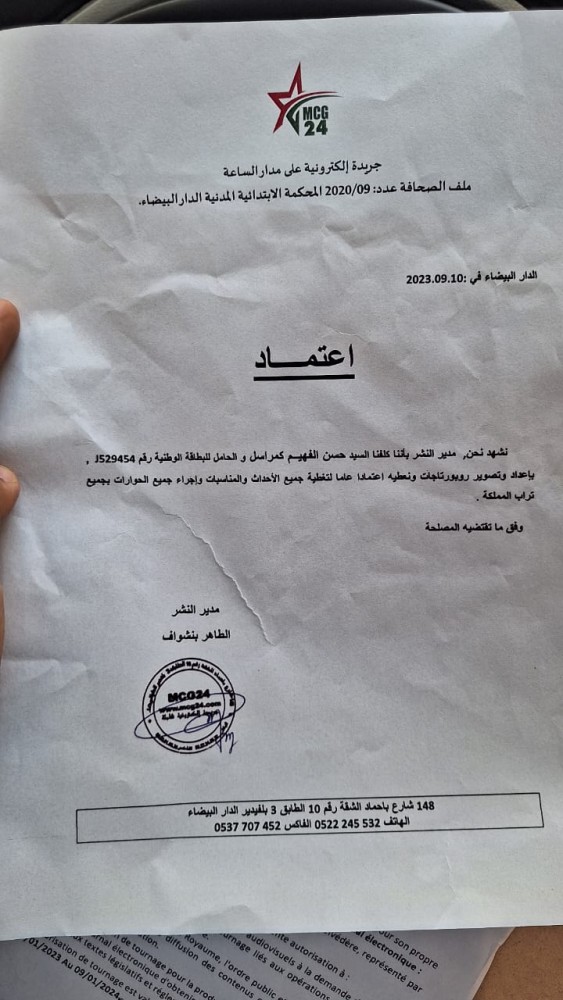 MCG
24
جريدة إلكترونية على مدار الساعة
ملف الصحافة عدد: 2020/09 المحكمة الابتدائية المدنية الدار البيضاء.
الدار البيضاء في :2023.09.10
اعتمـــاد
نشهد نحن, مدير النشر بأننا كلفنا السيد حسن الفهيم كمراسل و الحامل للبطاقة الوطنية رقم J529454 ,
بإعداد وتصوير روبورتاجات ونعطيه اعتمادا عاما لتغطية جميع الأحداث والمناسبات وإجراء جميع الحوارات بجميع
تراب المملكة .
وفق ما تقتضيه المصلحة
مدير النشر
الطاهر بنشواف
MCG24
www.mcg24.com
148 شارع باحماد الشقة رقم 10 الطابق 3 بلفيدير الدار البيضاء
الهاتف 532 245 0522 الفاكس 452 707 0537
our son propre
al électronique :
védère, représenté par
nte autorisation à :
audiovisuels à la demande
rnage liés aux opérations
Royaume, l'ordre public
diffusion des contenus
de tournage pour la prod
rnal électronique d'obtenir
x textes législatifs et règle
risation de tournage est val
/01/2023 Au 09/01/2024